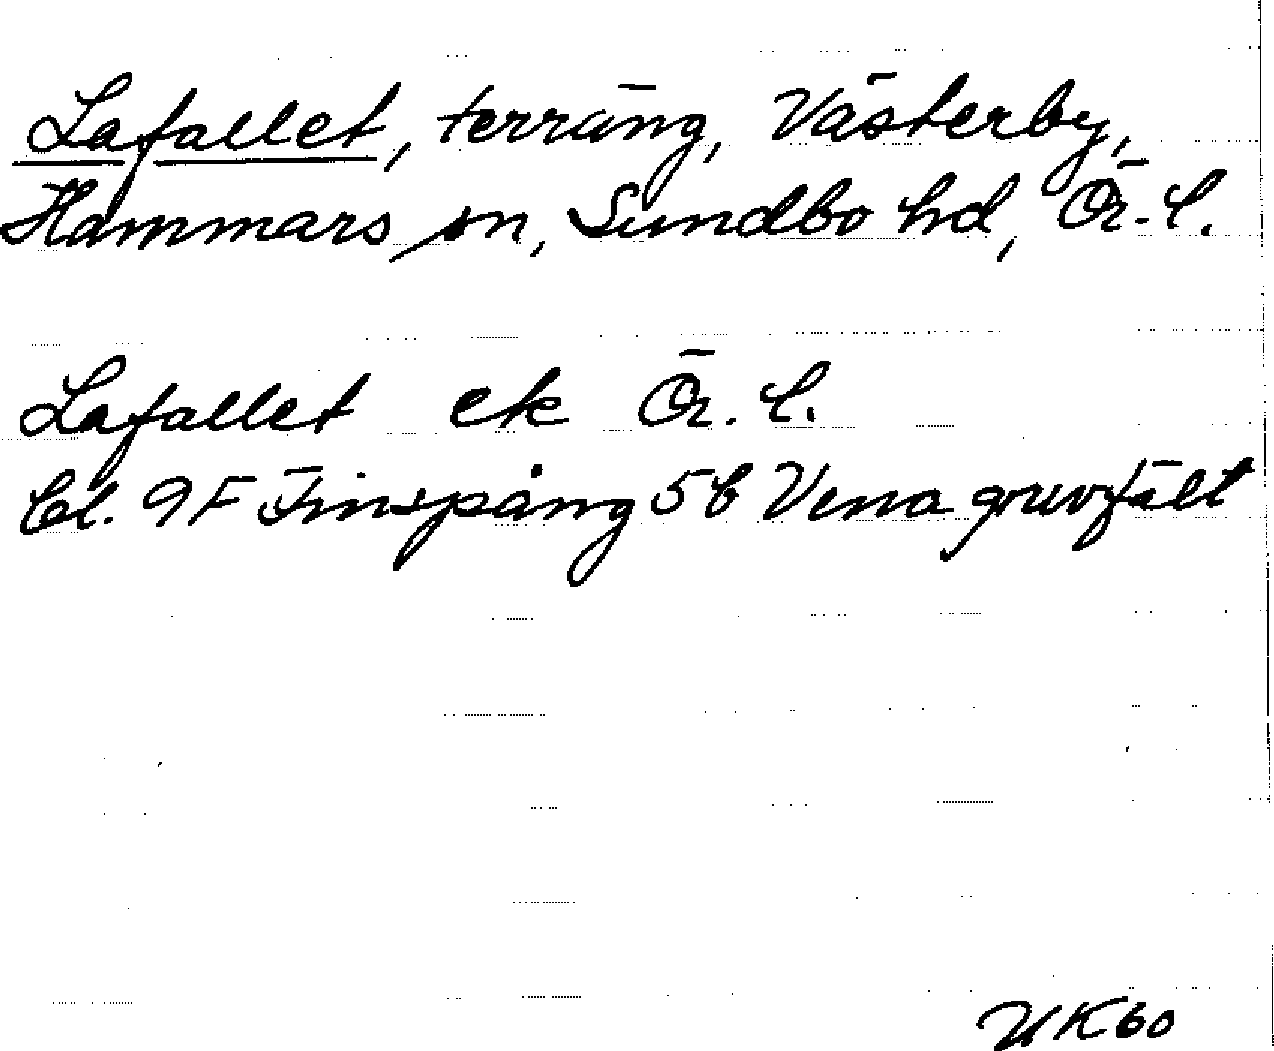 Lafallet, terräng, Västerby,
Hammars sn, Sundbo hd, Ör. l.
Lafallet ek Ör. l.
bl. 9F Finspång 5b Vena gruvfält
UK60